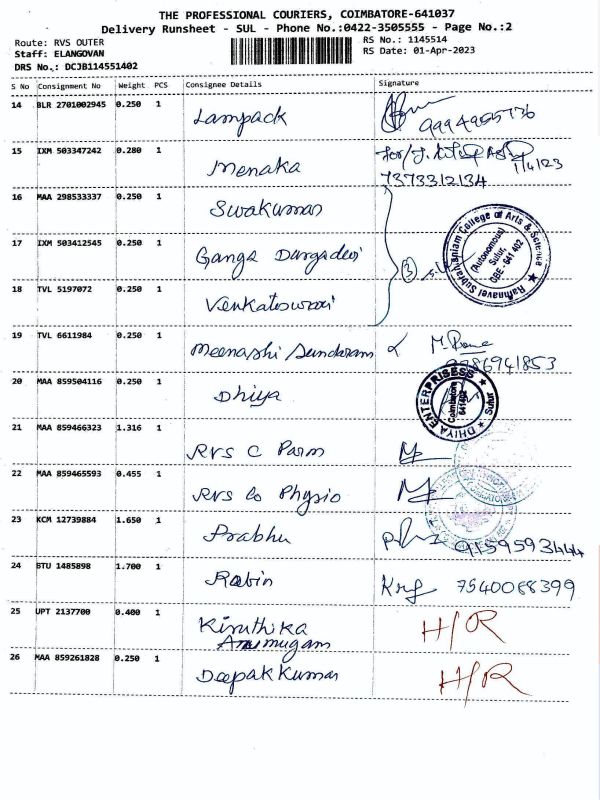 THE PROFESSIONAL COURIERS, COIMBATORE-641037
Delivery Runsheet - SUL - Phone No.:0422-3505555 - Page No.:2
Route: RVS OUTER RS No.: 1145514
Staff: ELANGOVAN RS Date: 01-Apr-2023
DRS No.: DCJB114551402
S No Consignment No Weight PCS Consignee Details Signature
14 BLR 2701002945 0.250 1 Lampack
15 IXM 503347242 0.280 1 Menaka 1/4/123
7373312134
16 MAA 298533337 0.250 1 Sivakumar
17 IXM 503412545 0.250 1 Ganga Durgadevi 3
Rathnavel Subramaniam College of Arts & Science
(Autonomous)
Sulur,
CBE - 641 402
18 TVL 5197072 0.250 1 Venkateswari
19 TVL 6611984 0.250 1 Meenashi Sundaram
20 MAA 859504116 0.250 1 Dhiya
DHIYA ENTERPRISESS
Coimbatore
641402
Sulur
21 MAA 859466323 1.316 1 RVS C Parm
22 MAA 859465593 0.455 1 RVS Co Physio
23 KCM 12739884 1.650 1 Prabhu 9159593444
24 BTU 1485898 1.700 1 Robin 7540088399
25 UPT 2137700 0.400 1 Kiruthika H/R
Arumugam
26 MAA 859261828 0.250 1 Deepak Kumar H/R